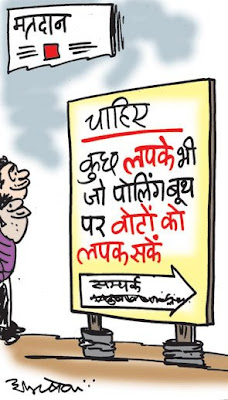 मतदान
चाहिए
कुछ लपके भी
जो पोलिंग बूथ
पर वोटों को
लपक सकें
सम्पर्क